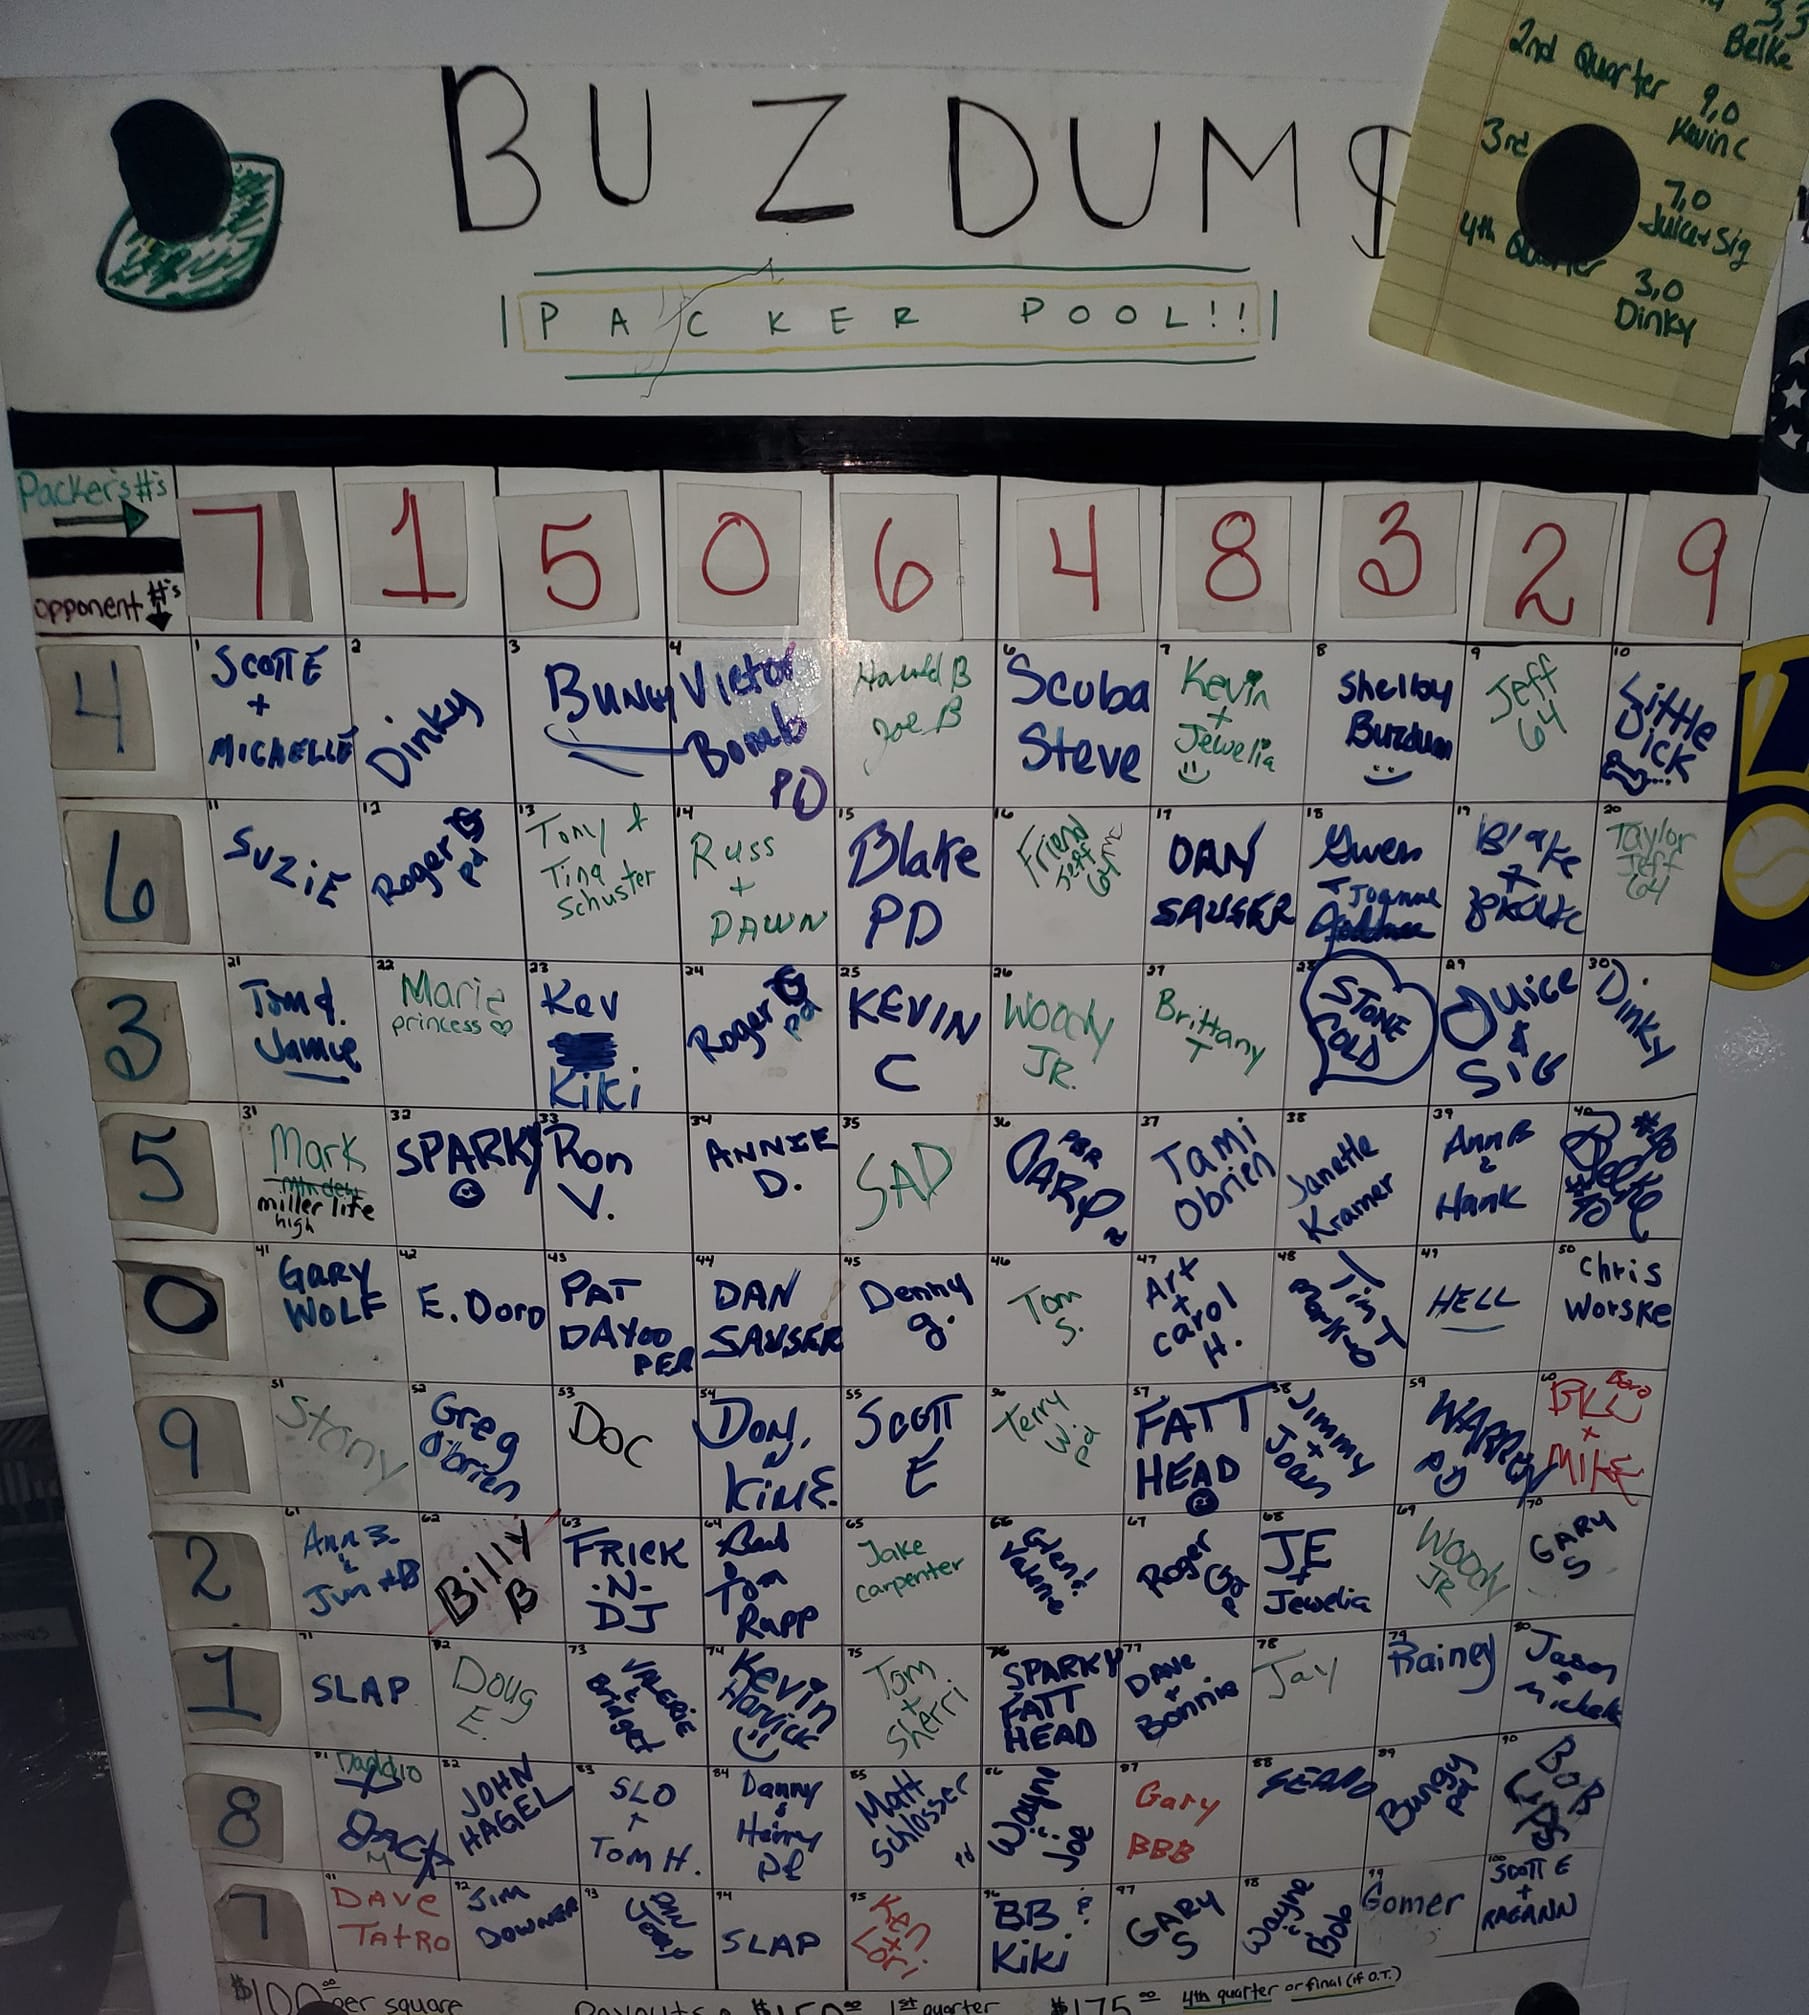 BUZDUM$
PACKER POOL!!
3,3
Belke
2nd Quarter 9,0
Kevin C
3rd
7,0
Juice + Sig
4th Quarter
3,0
Dinky
Packers #'s
opponent #'s
7 1 5 0 6 4 8 3 2 9
4
1 SCOTT E + MICHELLE
2 Dinky
3 BUNGY
4 Victor Bomb PD
Harold B Joe B
6 Scuba Steve
7 Kevin + Jewelia
8 Shelby Buzdum
9 Jeff 64
10 Little
6
11 SUZIE
12 Roger G pd
13 Tony & Tina Schuster
14 Russ + DAWN
15 Blake PD
16 Friend Jeff 64
17 DAN SAUSER
18 Gwen + Joanne
19 Blake +
20 Taylor Jeff 64
3
21 Tom & Jamie
22 Marie princess
23 Kev Kiki
24 Roger G pd
25 KEVIN C
26 Woody JR.
27 Brittany T
28 STONE COLD
29 Juice & SIG
30 Dinky
5
31 Mark miller high life
32 SPARKY
33 Ron V.
34 ANNIE D.
35 SAD
36 PBR
37 Tami Obrien
38 Janette Kramer
39 Ann B & Hank
40
0
41 GARY WOLF
42 E. Doro
43 PAT DAYOO PER
44 DAN SAUSER
45 Denny g.
46 Tom S.
47 Art + Carol H.
48 Tim T
49 HELL
50 Chris Worske
9
51 Stony
52 Greg O'brien
53 Doc
54 Don, KIM E.
55 SCOTT E
56 Terry W pd
57 FATT HEAD
58 Jimmy + Joan
59 WARREN PD
60 + MIKE
2
61 Ann B & Jim
62 Billy B
63 FRICK -N- DJ
64 Tom Rupp
65 Jake Carpenter
66 Glen &
67 Roger G pd
68 JE + Jewelia
69 Woody JR
70 GARY S
1
71 SLAP
72 Doug E.
73 VALERIE + Bridget
74 Kevin Harvick
75 Tom + Sherri
76 SPARKY FATT HEAD
77 DAVE + Bonnie
78 Jay
79 Rainey
80 Jason & Michele
8
81 Daddio
82 JOHN HAGEL
83 SLO + TOM H.
84 Danny & Henry Pd
85 Matt Schlosser pd
86 Wayne & Joe
87 Gary BBB
88
89 Bungy pd
90 BOB
7
91 DAVE TATRO
92 JIM DOWNER
93
94 SLAP
95 Ken Lori
96 BB & Kiki
97 GARY S
98 Wayne & Bob
99 Gomer
100 SCOTT E + RAEANN
$100.00 per square
$150.00 1st quarter
$175.00 4th quarter or final (if O.T.)